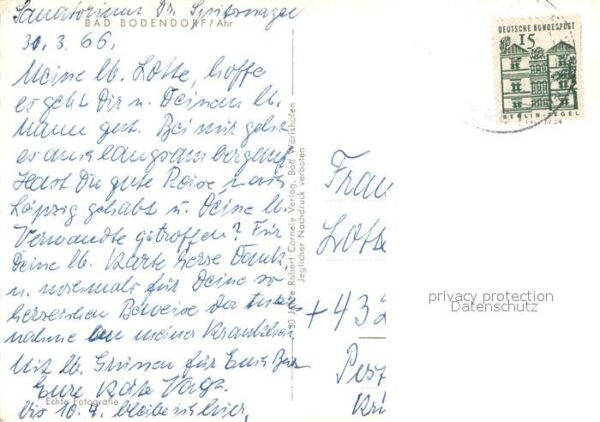 Sanatorium Dr. Spitznagel
BAD BODENDORF/Ahr
30.3.66.
Meine lb. Lotte, hoffe
es geht Dir u. Deinem lb.
Mann gut. Bei mir geht
es auch langsam bergauf.
Hast Du gute Reise nach
Leipzig gehabt u. Deine lb.
Verwandte getroffen? Für
Deine lb. Karte herzl. Dank
u. nochmals für Deine so
herzlichen Beweise der
nahme an meiner Krankheit
Mit lb. Grüssen für Euch
Eure Käte
bis 10.4. bleibe ich hier.
Echte Fotografie
50 Jahre Robert Cornely Verlag, Bad Wörishofen
Jeglicher Nachdruck verboten
DEUTSCHE BUNDESPOST
15
BERLIN-TEGEL
Frau
Lotte
+ 432
privacy protection
Datenschutz